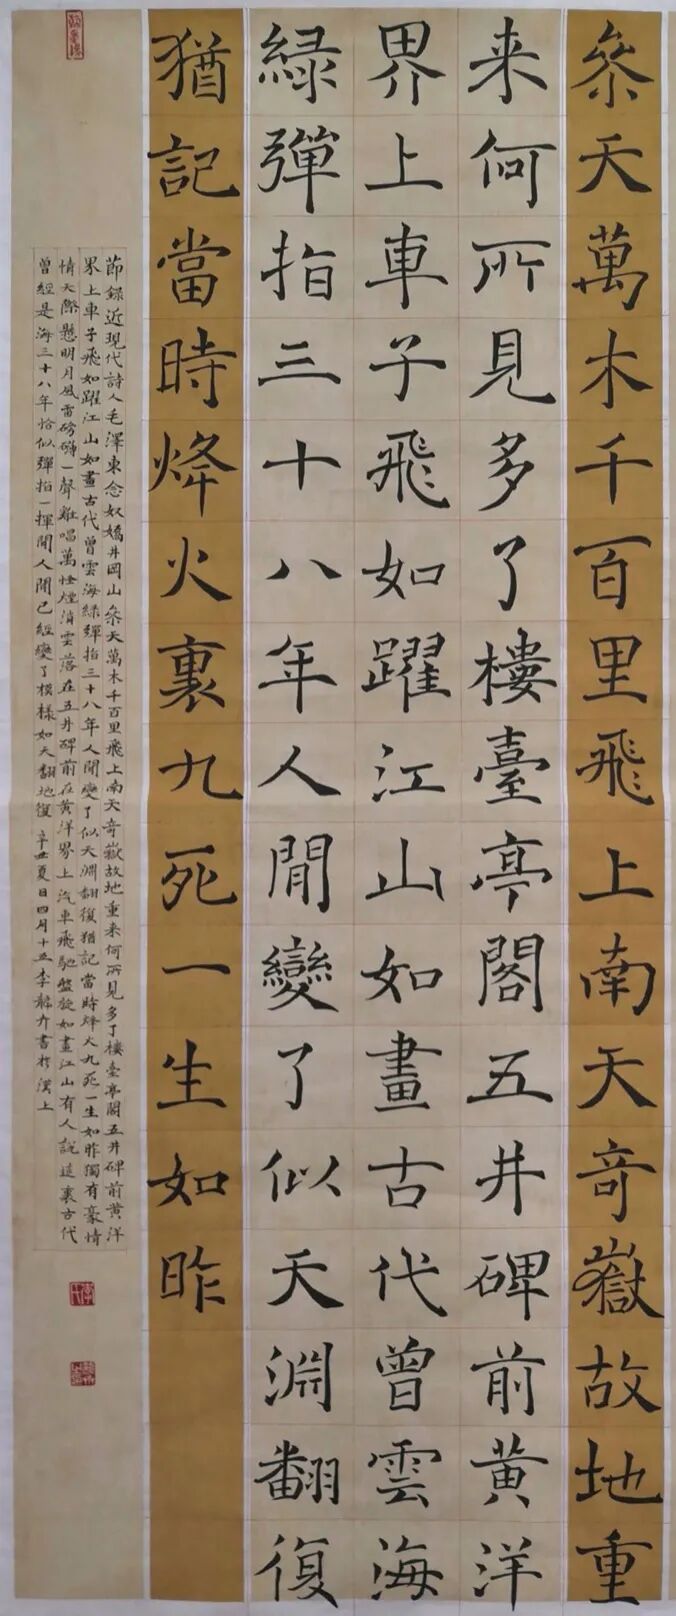 叅天萬木千百里飛上南天竒嶽故地重
来何所見多了樓臺亭閣五井碑前黄洋
界上車子飛如躍江山如畫古代曾雲海
緑彈指三十八年人間變了似天淵翻復
猶記當時烽火裏九死一生如昨
節録近現代詩人毛澤東念奴嬌井岡山叅天萬木千百里飛上南天竒嶽故地重来何所見多了樓臺亭閣五井碑前黄洋
界上車子飛如躍江山如畫古代曾雲海緑彈指三十八年人間變了似天淵翻復猶記當時烽火九死一生如昨獨有豪情
情天際懸明月風雷磅礴一聲雞唱萬怪煙消雲落在五井碑前在黄洋界上汽車飛馳盤旋如畫江山有人説這裏古代
曾經是海三十八年恰似彈指一揮間人間已經變了模樣如天翻地復 辛丑夏日四月十五李 书於漢上